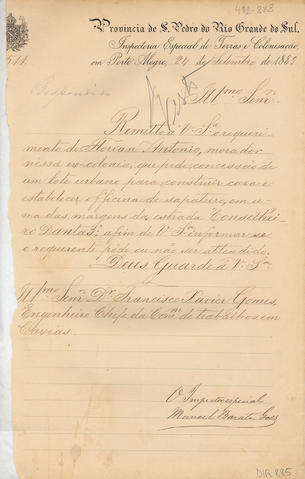 492-883
Provincia de S. Pedro do Rio Grande do Sul.
Inspectoria Especial de Terras e Colonisação,
em Porto Alegre, 24 de Setembro de 1883
511
Respondido
Illmo Senr.
Remetto a V. Sa o requeri-
mento de Florian Antonio, morador
nessa ex-colonia, que pede concessão de
um lote urbano para construir casa e
estabelecer officina de sapateiro, em u-
ma das margens da estrada Conselhei-
ro Dantas; afim de V. Sa informar se
o requerente póde ou não ser attendido.
Deus Guarde á V. Sa
Illmo Senr. Dr. Francisco Xavier Gomes,
Engenheiro Chefe da Comm. de trabalhos em
Caxias.
O Inspector especial
Manoel Barata Goes
DIR 885